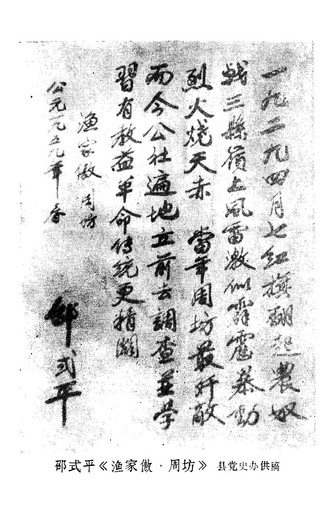 一九二九四月七红旗翻起農奴
戟三縣嶺上風雷激似霹靂暴動
烈火燒天赤 當年周坊最歼敵
而今公社遍地立前去調查並学
習有教益革命传统更精闢
渔家傲 周坊
公元一九五九年春
邵式平
邵式平《渔家傲·周坊》 县党史办供稿